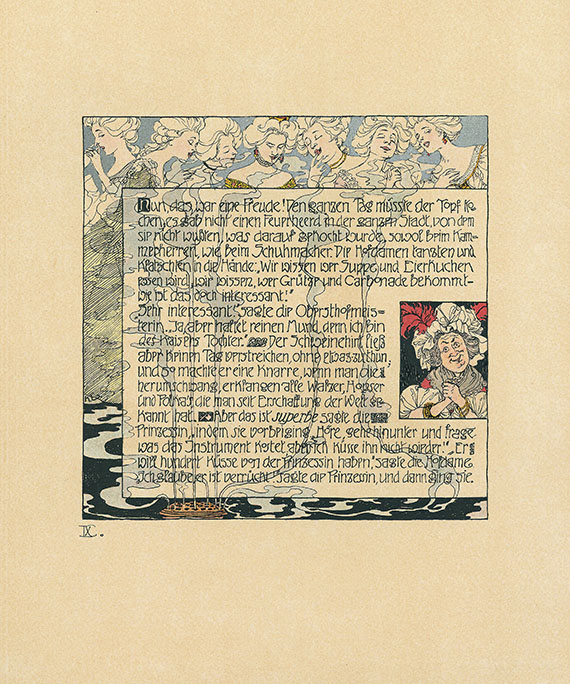 Nun, das war eine Freude! Den ganzen Tag müsste der Topf ko
chen; es gab nicht einen Feuerheerd in der ganzen Stadt, von dem
sie nicht wußten, was darauf gekocht wurde, sowol beim Kam-
merherrn, wie beim Schuhmacher. Die Hofdamen tanzten und
klatschten in die Hände: „Wir wissen wer Suppe und Eierkuchen
essen wird, wir wissen, wer Grütze und Carbonade bekommt-
wie ist das doch interessant!"
Sehr interessant! sagte die Obersthofmeis=
terin. „Ja, aber haltet reinen Mund, denn ich bin
des Kaisers Tochter. Der Schweinehirt ließ
aber keinen Tag verstreichen, ohne etwas zu thun,
und so machte er eine Knarre, wenn man die
herumschwang, erklangen alle Walzer, Hopser
und Polka's, die man seit Erschaffung der Welt ge
kannt hat. Aber das ist superbe sagte die
Prinzessin, indem sie vorbeiging. „Höre, gehe hinunter und frage
was das Instrument kostet, aber ich küsse ihn nicht wieder!" „Er
will hundert Küsse von der Prinzessin haben," sagte die Hofdame.
„Ich glaube, er ist verrückt!" sagte die Prinzessin, und dann ging sie.
IX.